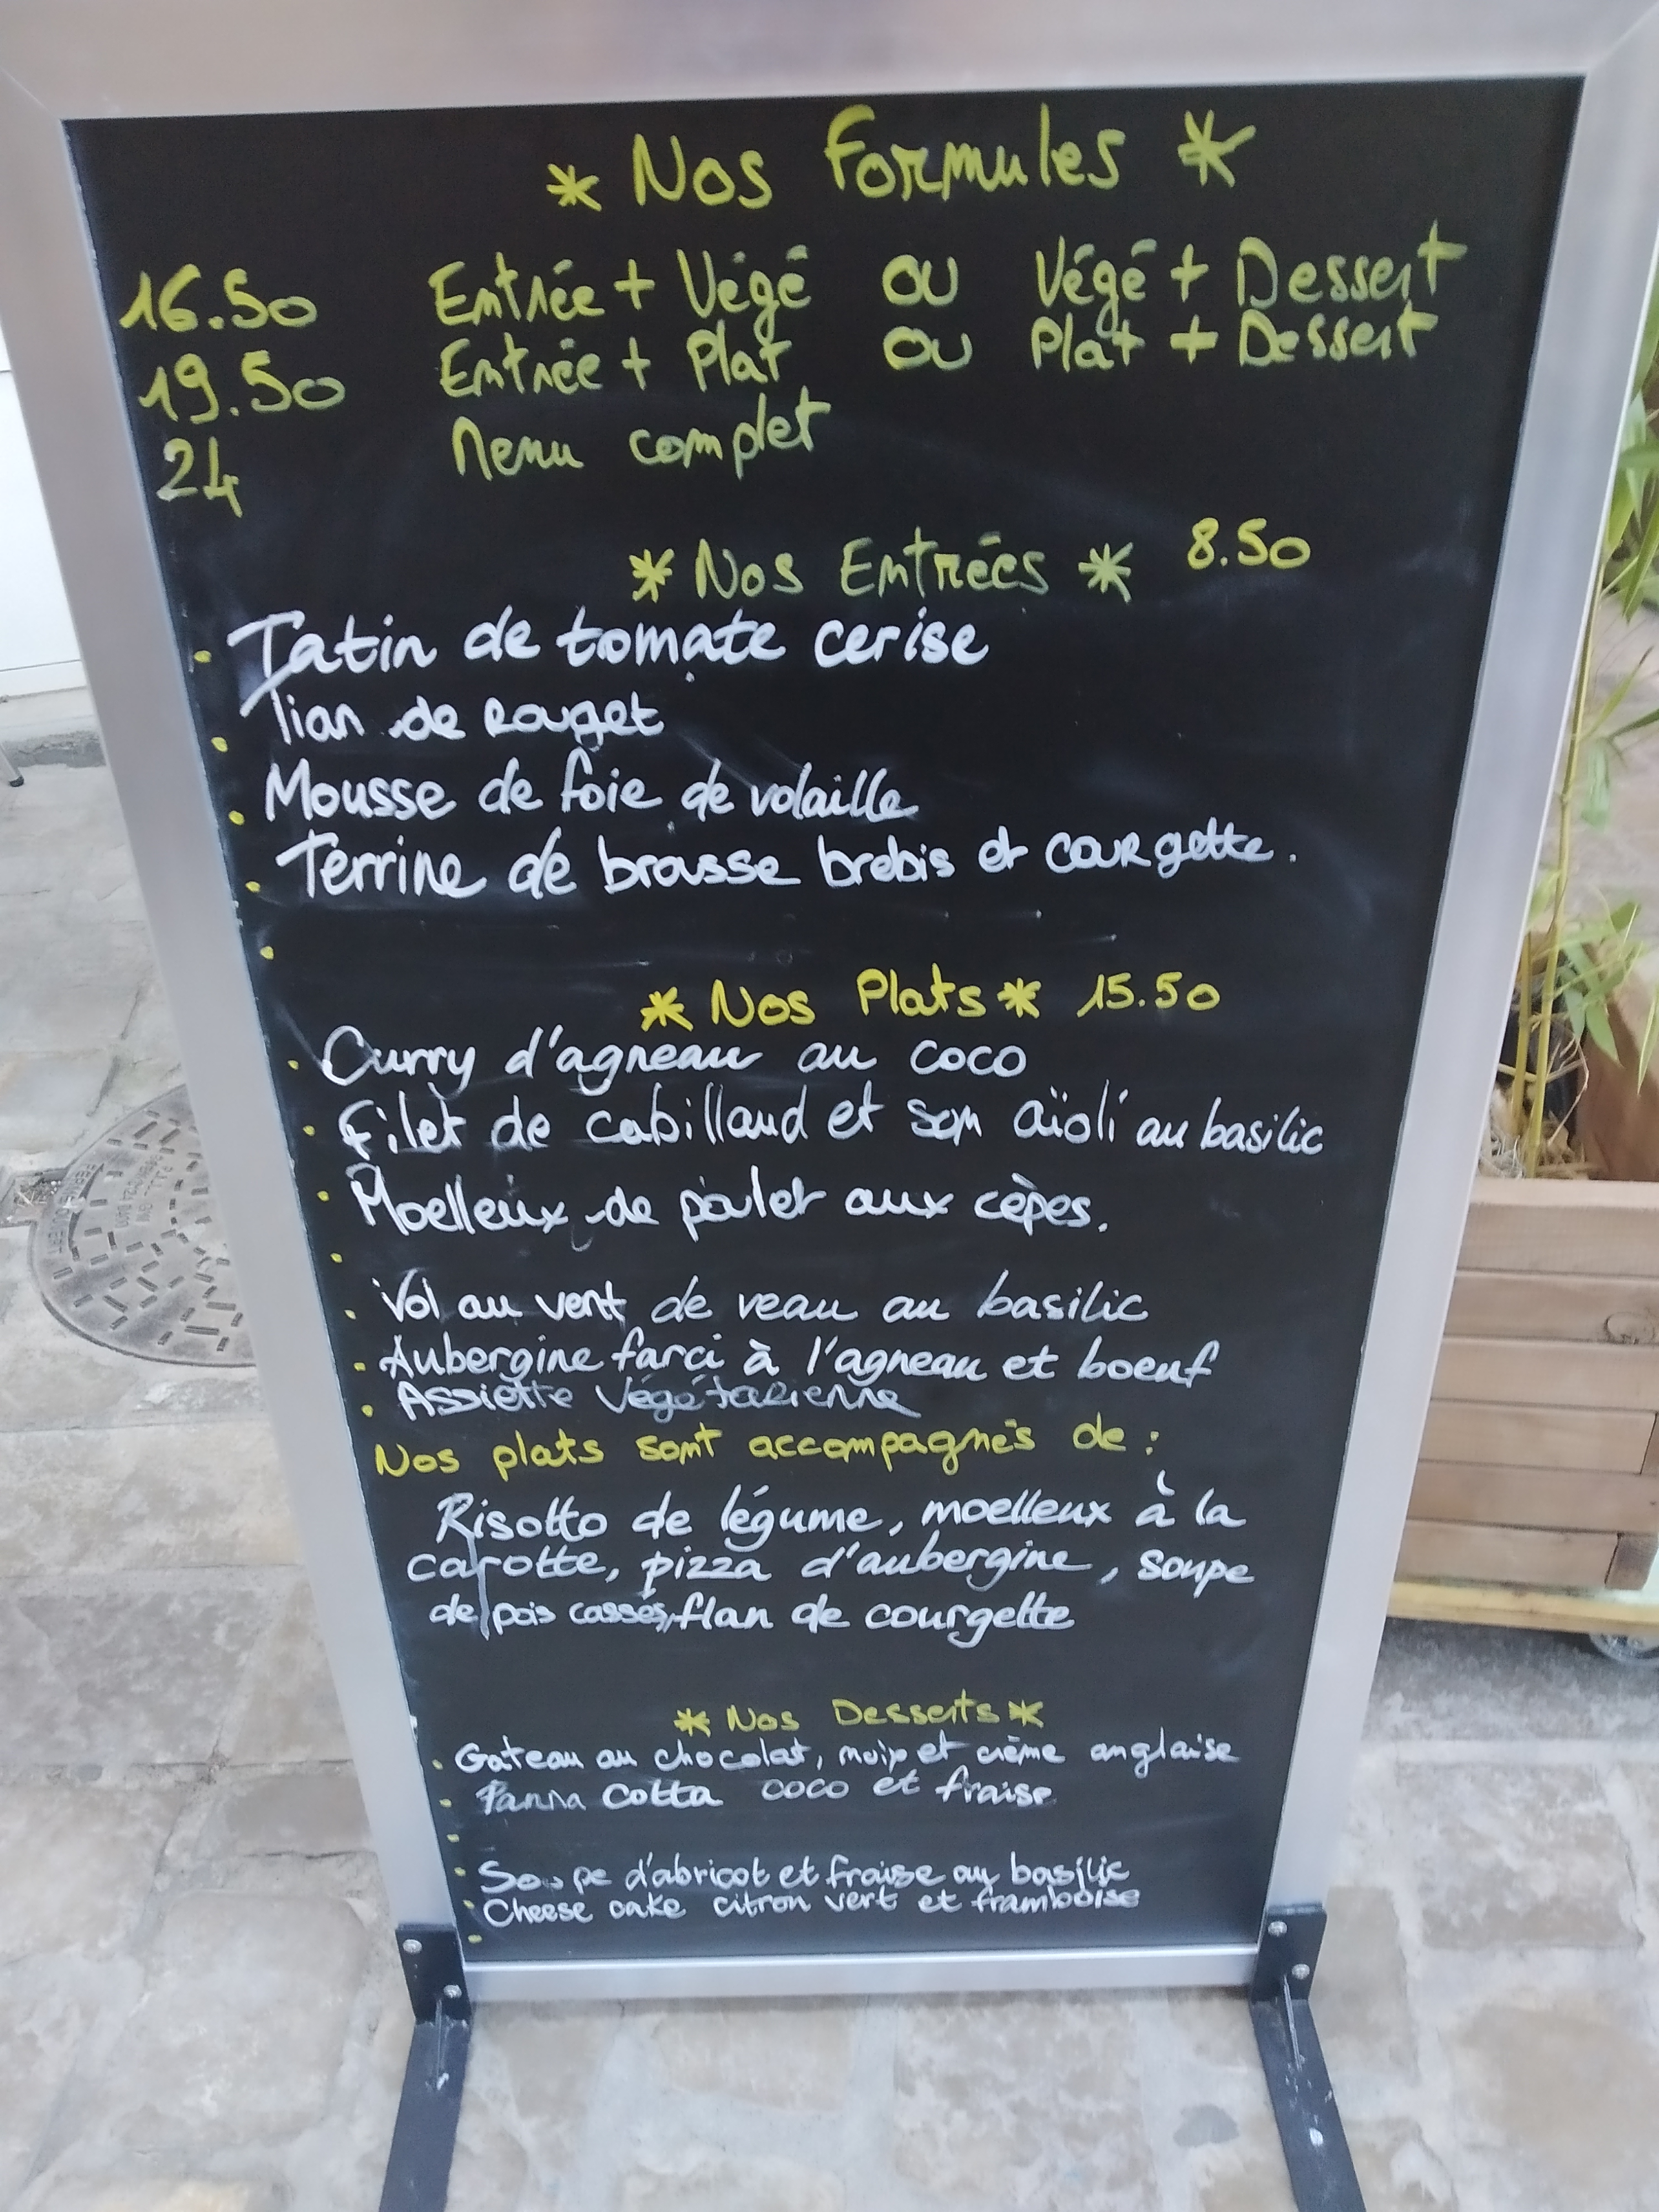 * Nos Formules *
16.50 Entrée + Végé ou Végé + Dessert
19.50 Entrée + Plat ou Plat + Dessert
24 Menu complet
* Nos Entrées * 8.50
. Tatin de tomate cerise
. Tian de Rouget
. Mousse de foie de volaille
. Terrine de brousse brebis et courgette.
.
* Nos Plats * 15.50
. Curry d'agneau au coco
. Filet de cabillaud et son aïoli au basilic
. Moelleux de poulet aux cèpes.
.
. Vol au vent de veau au basilic
. Aubergine farci à l'agneau et boeuf
. Assiette Végétarienne
Nos plats sont accompagnés de :
Risotto de légume, moelleux à la
carotte, pizza d'aubergine, soupe
de pois cassés, flan de courgette
* Nos Desserts *
. Gateau au chocolat, noix et crème anglaise
. Panna Cotta coco et fraise
.
. Soupe d'abricot et fraise au basilic
. Cheese cake citron vert et framboise
.